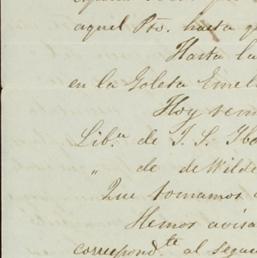 aquel Pto. hasta q
Hasta la
en la Goleta Emel
Hoy rem
Lib.ª de J. S.
" de de Wilde
Que tomamos
Hemos avisa
correspond.te al segu